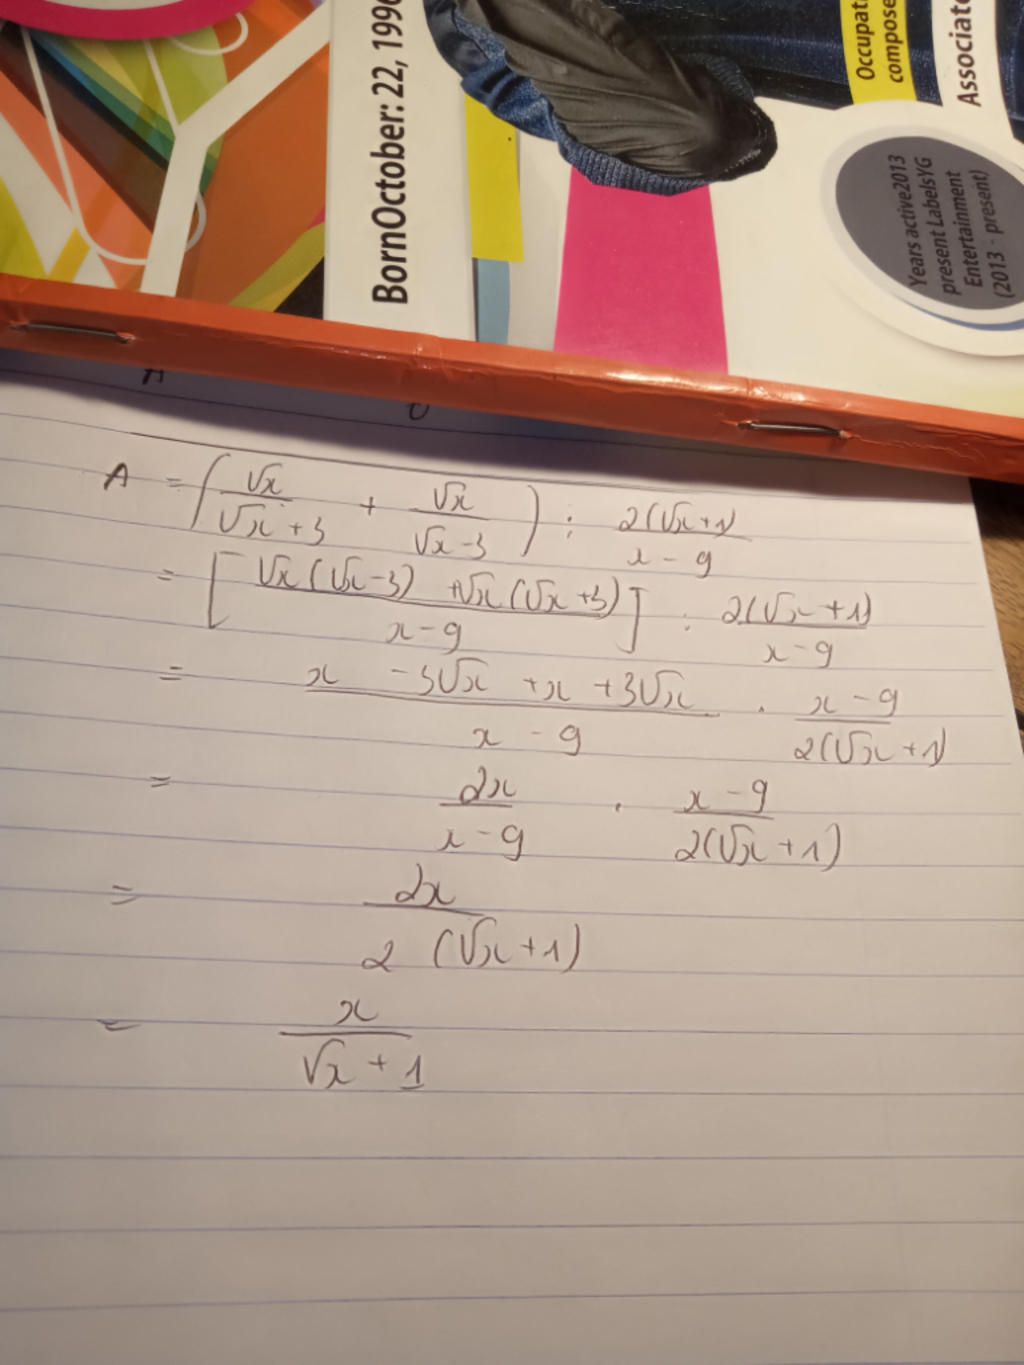 BornOctober: 22, 1996
Occupat
compose
Associate
Years active2013
present LabelsYG
Entertainment
(2013 - present)
A = (√x/(√x+3) + √x/(√x-3)) : 2(√x+1)/(x-9)
= [(√x(√x-3) + √x(√x+3))/(x-9)] : 2(√x+1)/(x-9)
= (x - 3√x + x + 3√x)/(x - 9) . (x - 9)/(2(√x+1))
= 2x/(x-9) . (x-9)/(2(√x+1))
= 2x/(2(√x+1))
= x/(√x+1)